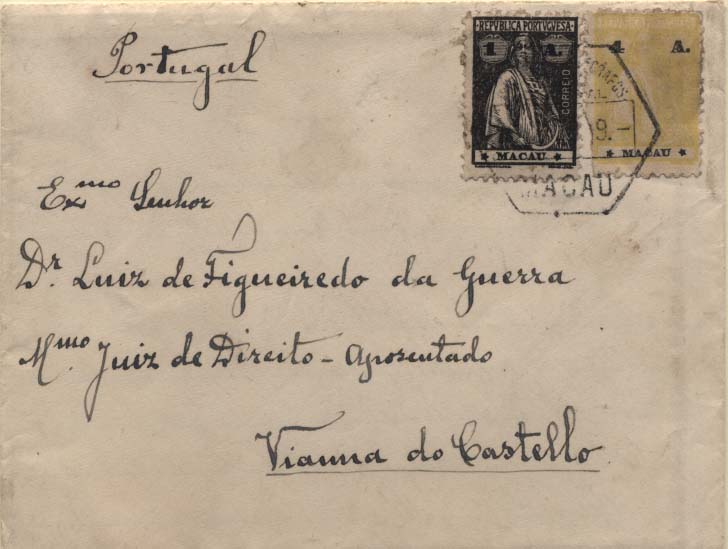 Portugal
REPÚBLICA PORTUGUESA
1 A.
CORREIO
MACAU
4 A.
MACAU
9.-
MACAU
Exmo Senhor
Dr Luiz de Figueiredo da Guerra
Mmo. Juiz de Direito - Aposentado
Vianna do Castello